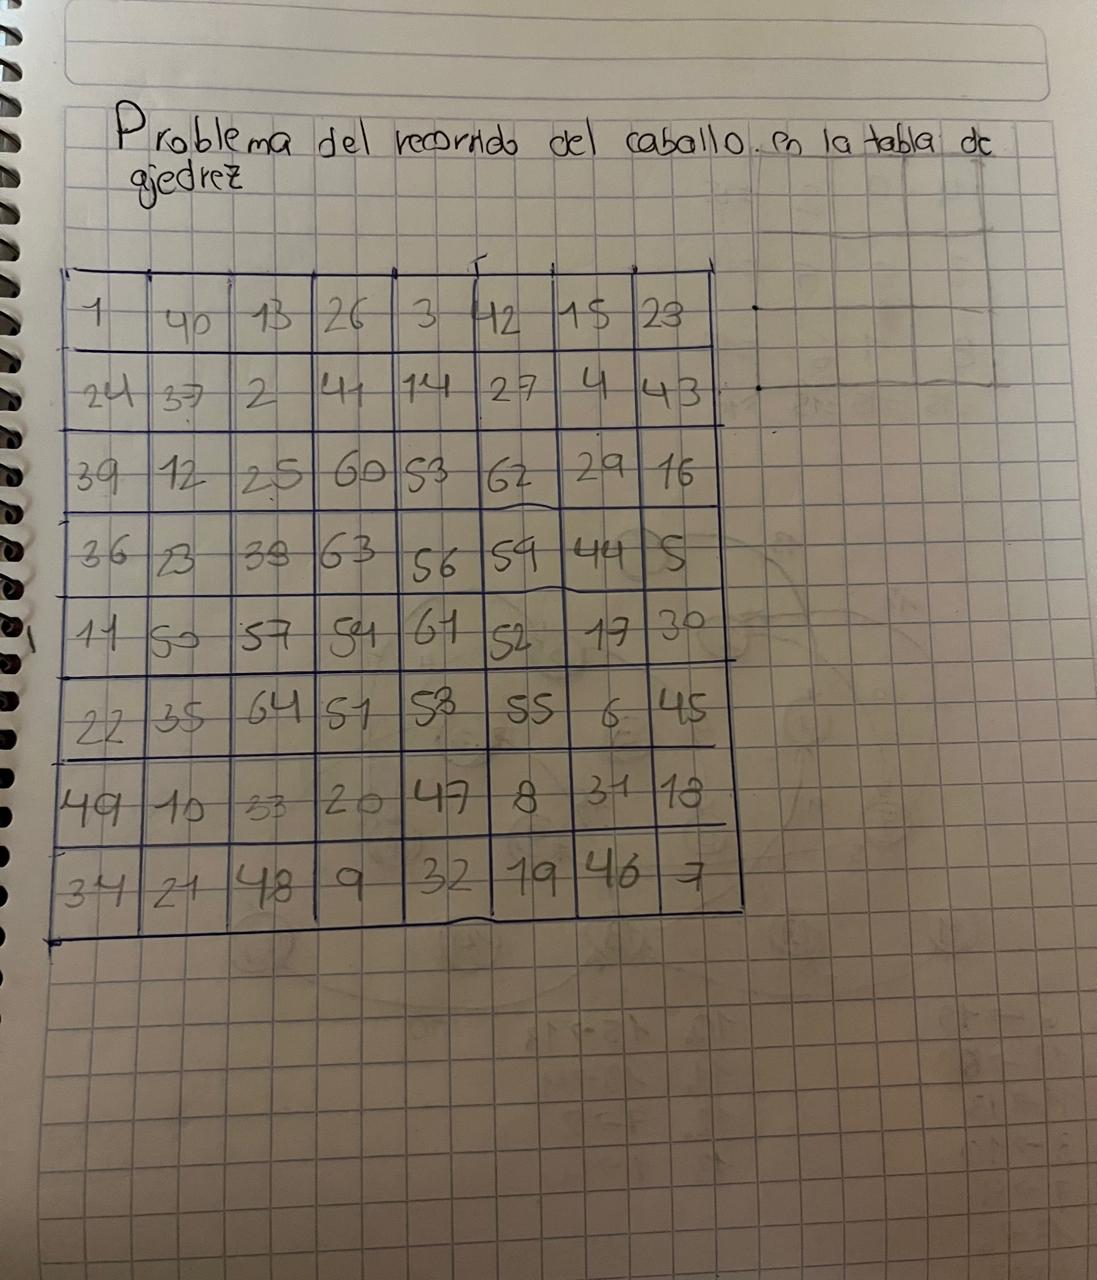 Problema del recorrido del caballo. en la tabla de
ajedrez
1 40 13 26 3 42 15 28
24 37 2 41 14 27 4 43
39 12 25 60 53 62 29 16
36 23 38 63 56 59 44 5
11 50 57 54 61 52 17 30
22 35 64 51 58 55 6 45
49 10 33 20 47 8 31 18
34 21 48 9 32 19 46 7